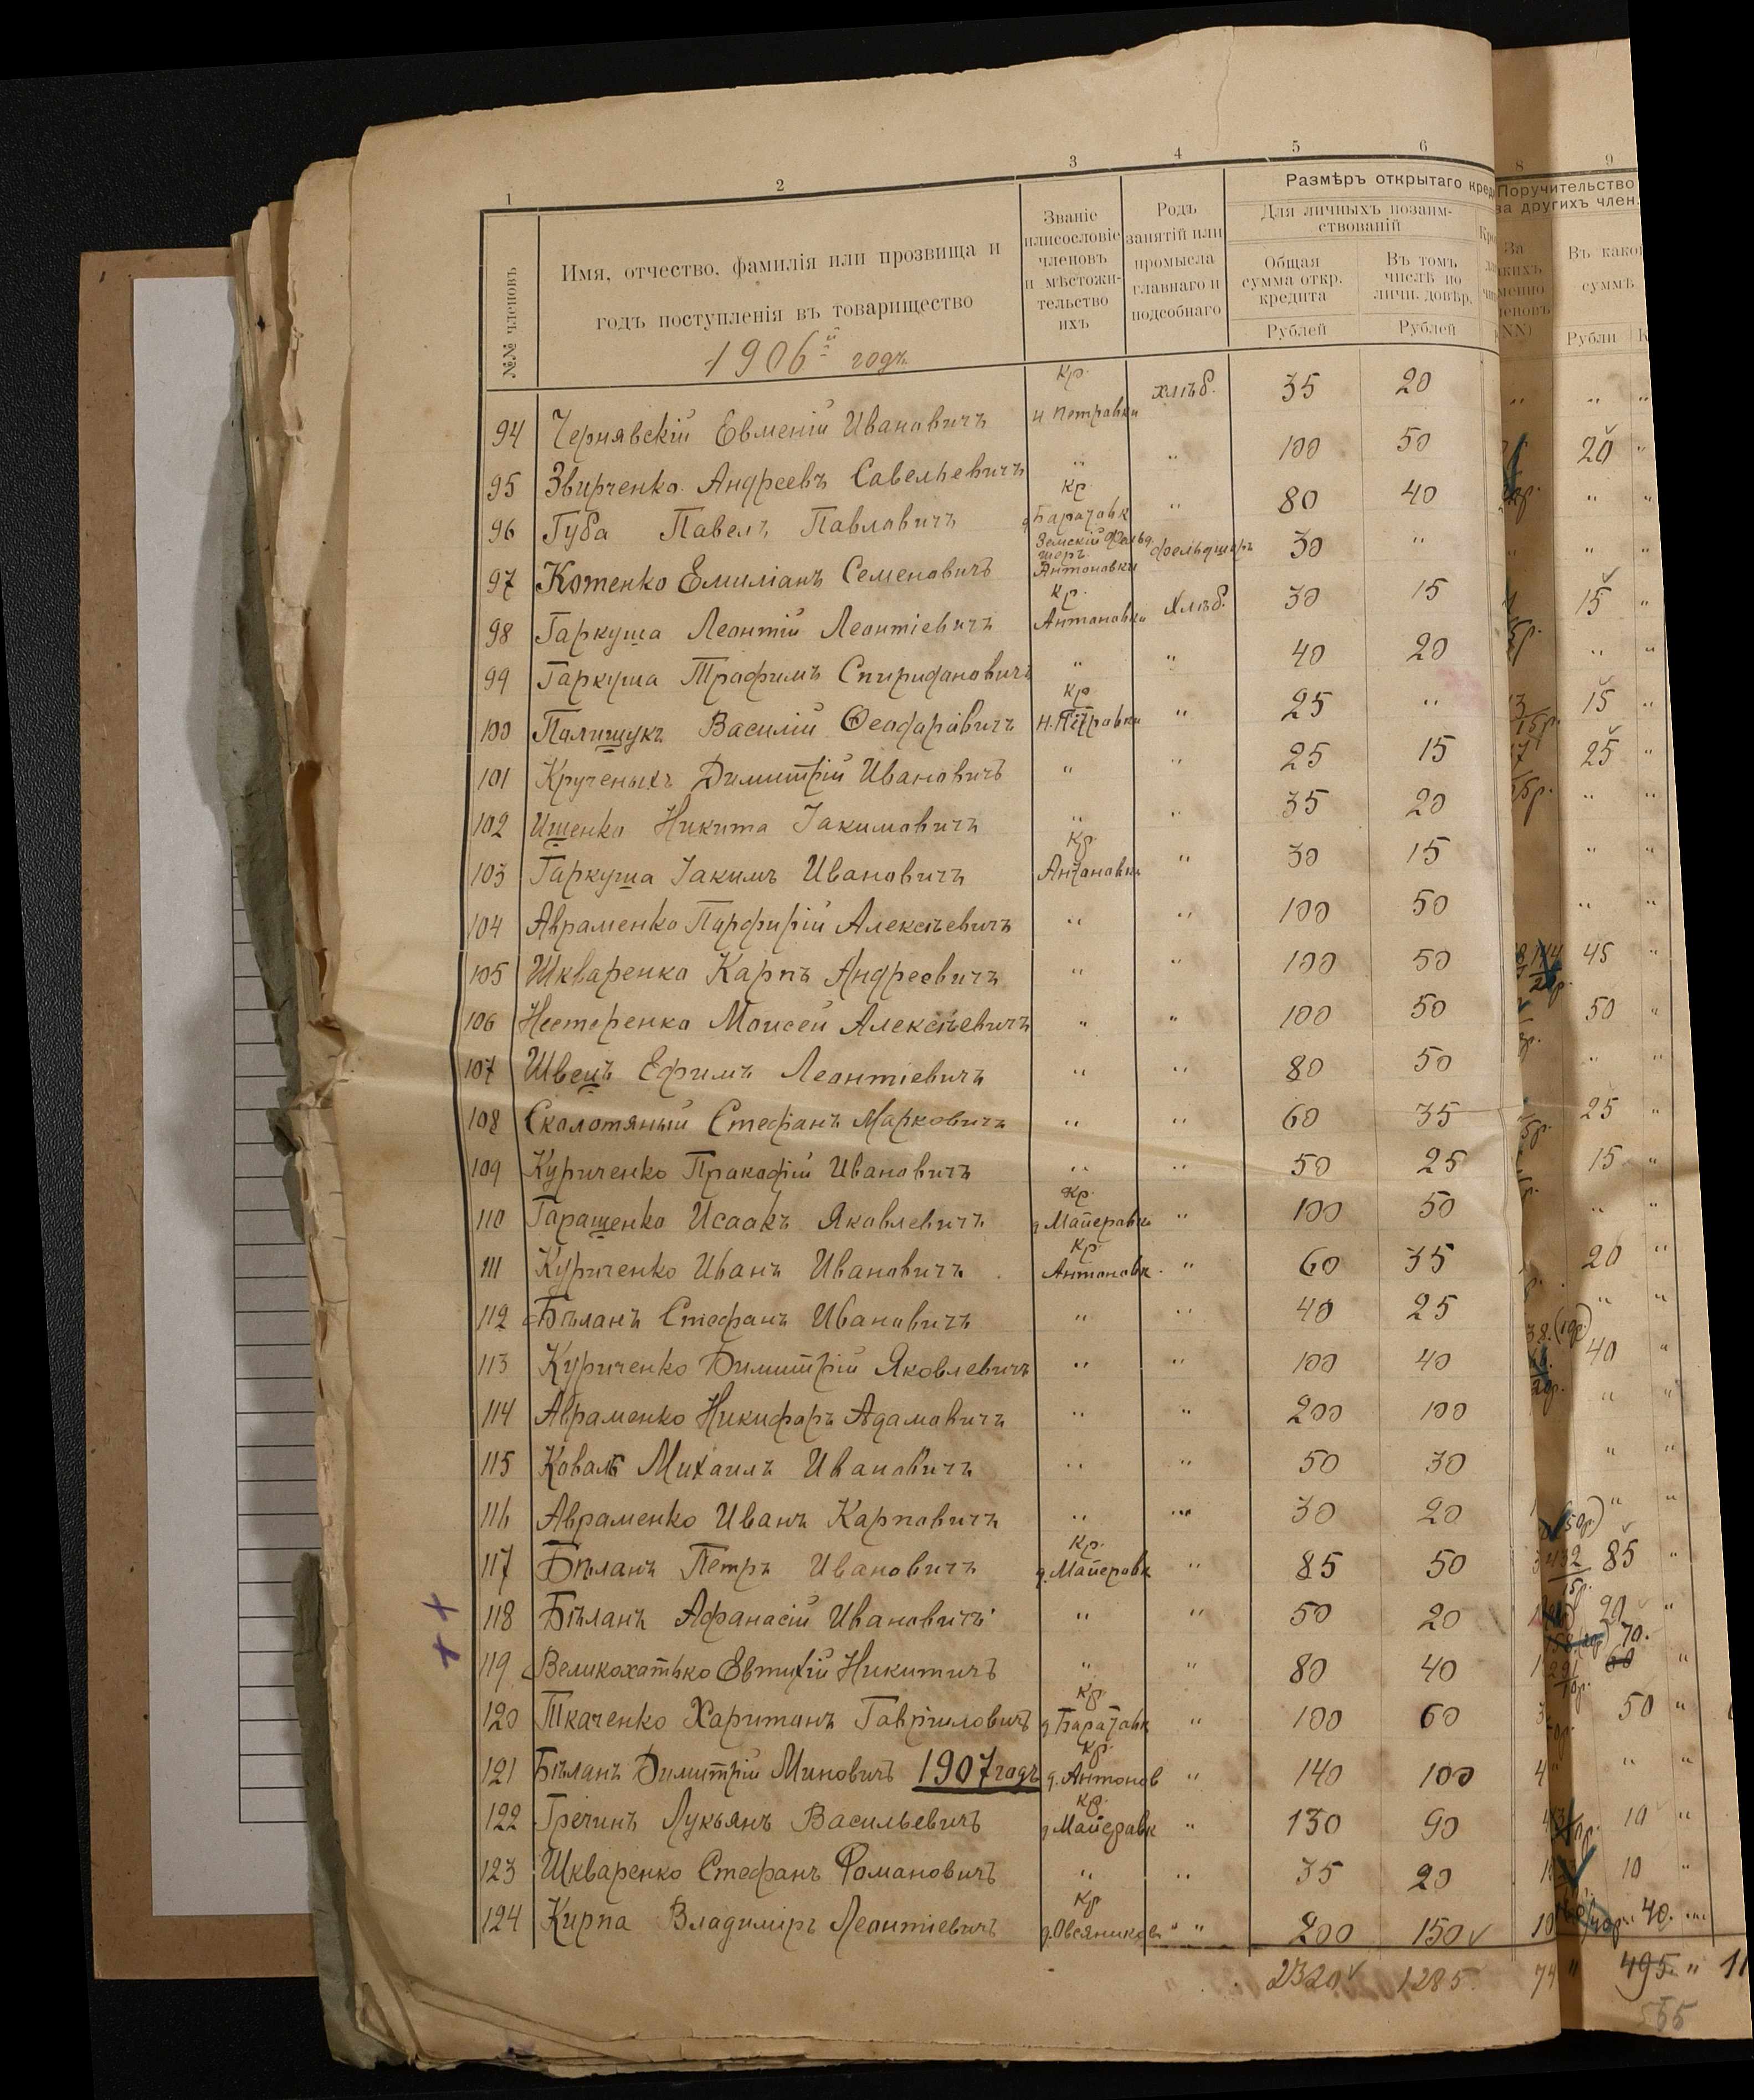 1 2 3 4 5 6 8 9
№№ членовъ
Имя, отчество, фамилія или прозвища и
годъ поступленія въ товарищество
1906й годъ
Званіе
илисословіе
членовъ
и мѣстожи-
тельство
ихъ
Родъ
занятій или
промысла
главнаго и
подсобнаго
Размѣръ открытаго
Для личныхъ позаим-
ствованій
Общая
сумма откр.
кредита
Рублей
Въ томъ
числѣ по
личн. довѣр.
Рублей
Поручительство
за другихъ член.
За
Въ
суммѣ
Рубли
94 Чернявскій Евменій Ивановичъ Кр. н Петровки хлѣб. 35 20 " "
95 Звирченко Андреевъ Савельевичъ " " 100 50 20 "
96 Губа Павелъ Павловичъ Кр д Баратовк " 80 40 " "
97 Котенко Емиліанъ Семеновичъ Земскій Фельд. шеръ Антоновки фельдшеръ 30 " " "
98 Гаркуша Леонтій Леонтіевичъ Кр. Антоновки Хлѣб. 30 15 15 "
99 Гаркуша Трафимъ Спиридановичъ " " 40 20 " "
100 Палищукъ Василій Ѳеодаровичъ Кр Н.Петровки " 25 " 15 "
101 Крученыхъ Димитрій Ивановичъ " " 25 15 25 "
102 Ищенко Никита Іакимовичъ " " 35 20 " "
103 Гаркуша Іакимъ Ивановичъ Кр. Антоновки " 30 15 " "
104 Авраменко Парфирій Алексѣевичъ " " 100 50 " "
105 Шкваренко Карпъ Андреевичъ " " 100 50 45 "
106 Нестеренко Моисей Алексѣевичъ " " 100 50 50 "
107 Швецъ Ефимъ Леонтіевичъ " " 80 50 " "
108 Сколотяный Стефанъ Марковичъ " " 60 35 25 "
109 Куриченко Пракофій Ивановичъ " " 50 25 15 "
110 Гаращенко Исаакъ Яковлевичъ Кр. д Майеровки " 100 50 " "
111 Куриченко Иванъ Ивановичъ Кр Антоновк. " 60 35 20 "
112 Бѣланъ Стефанъ Ивановичъ " " 40 25 " "
113 Куриченко Димитрій Яковлевичъ " " 100 40 40 "
114 Авраменко Никифоръ Адамовичъ " " 200 100 " "
115 Коваль Михаилъ Ивановичъ " " 50 30 " "
116 Авраменко Иванъ Карповичъ " " 30 20 " "
117 Бѣланъ Петръ Ивановичъ Кр. д.Майеровк " 85 50 85 "
118 Бѣланъ Афанасій Ивановичъ " " 50 20 20 "
119 Великохатько Евтихій Никитичъ " " 80 40 70. "
120 Ткаченко Харитонъ Гавріиловичъ Кр д Баратовк " 100 60 50 "
121 Бѣланъ Димитрій Миновичъ 1907 годъ Кр. д. Антонов " 140 100 " "
122 Гречинъ Лукьянъ Васильевичъ Кр. д Майеровк " 130 90 10 "
123 Шкваренко Стефанъ Романовичъ " " 35 20 10 "
124 Кирпа Владиміръ Леонтіевичъ Кр д.Овсяников " " 200 150 40.
2320 1285 495. "